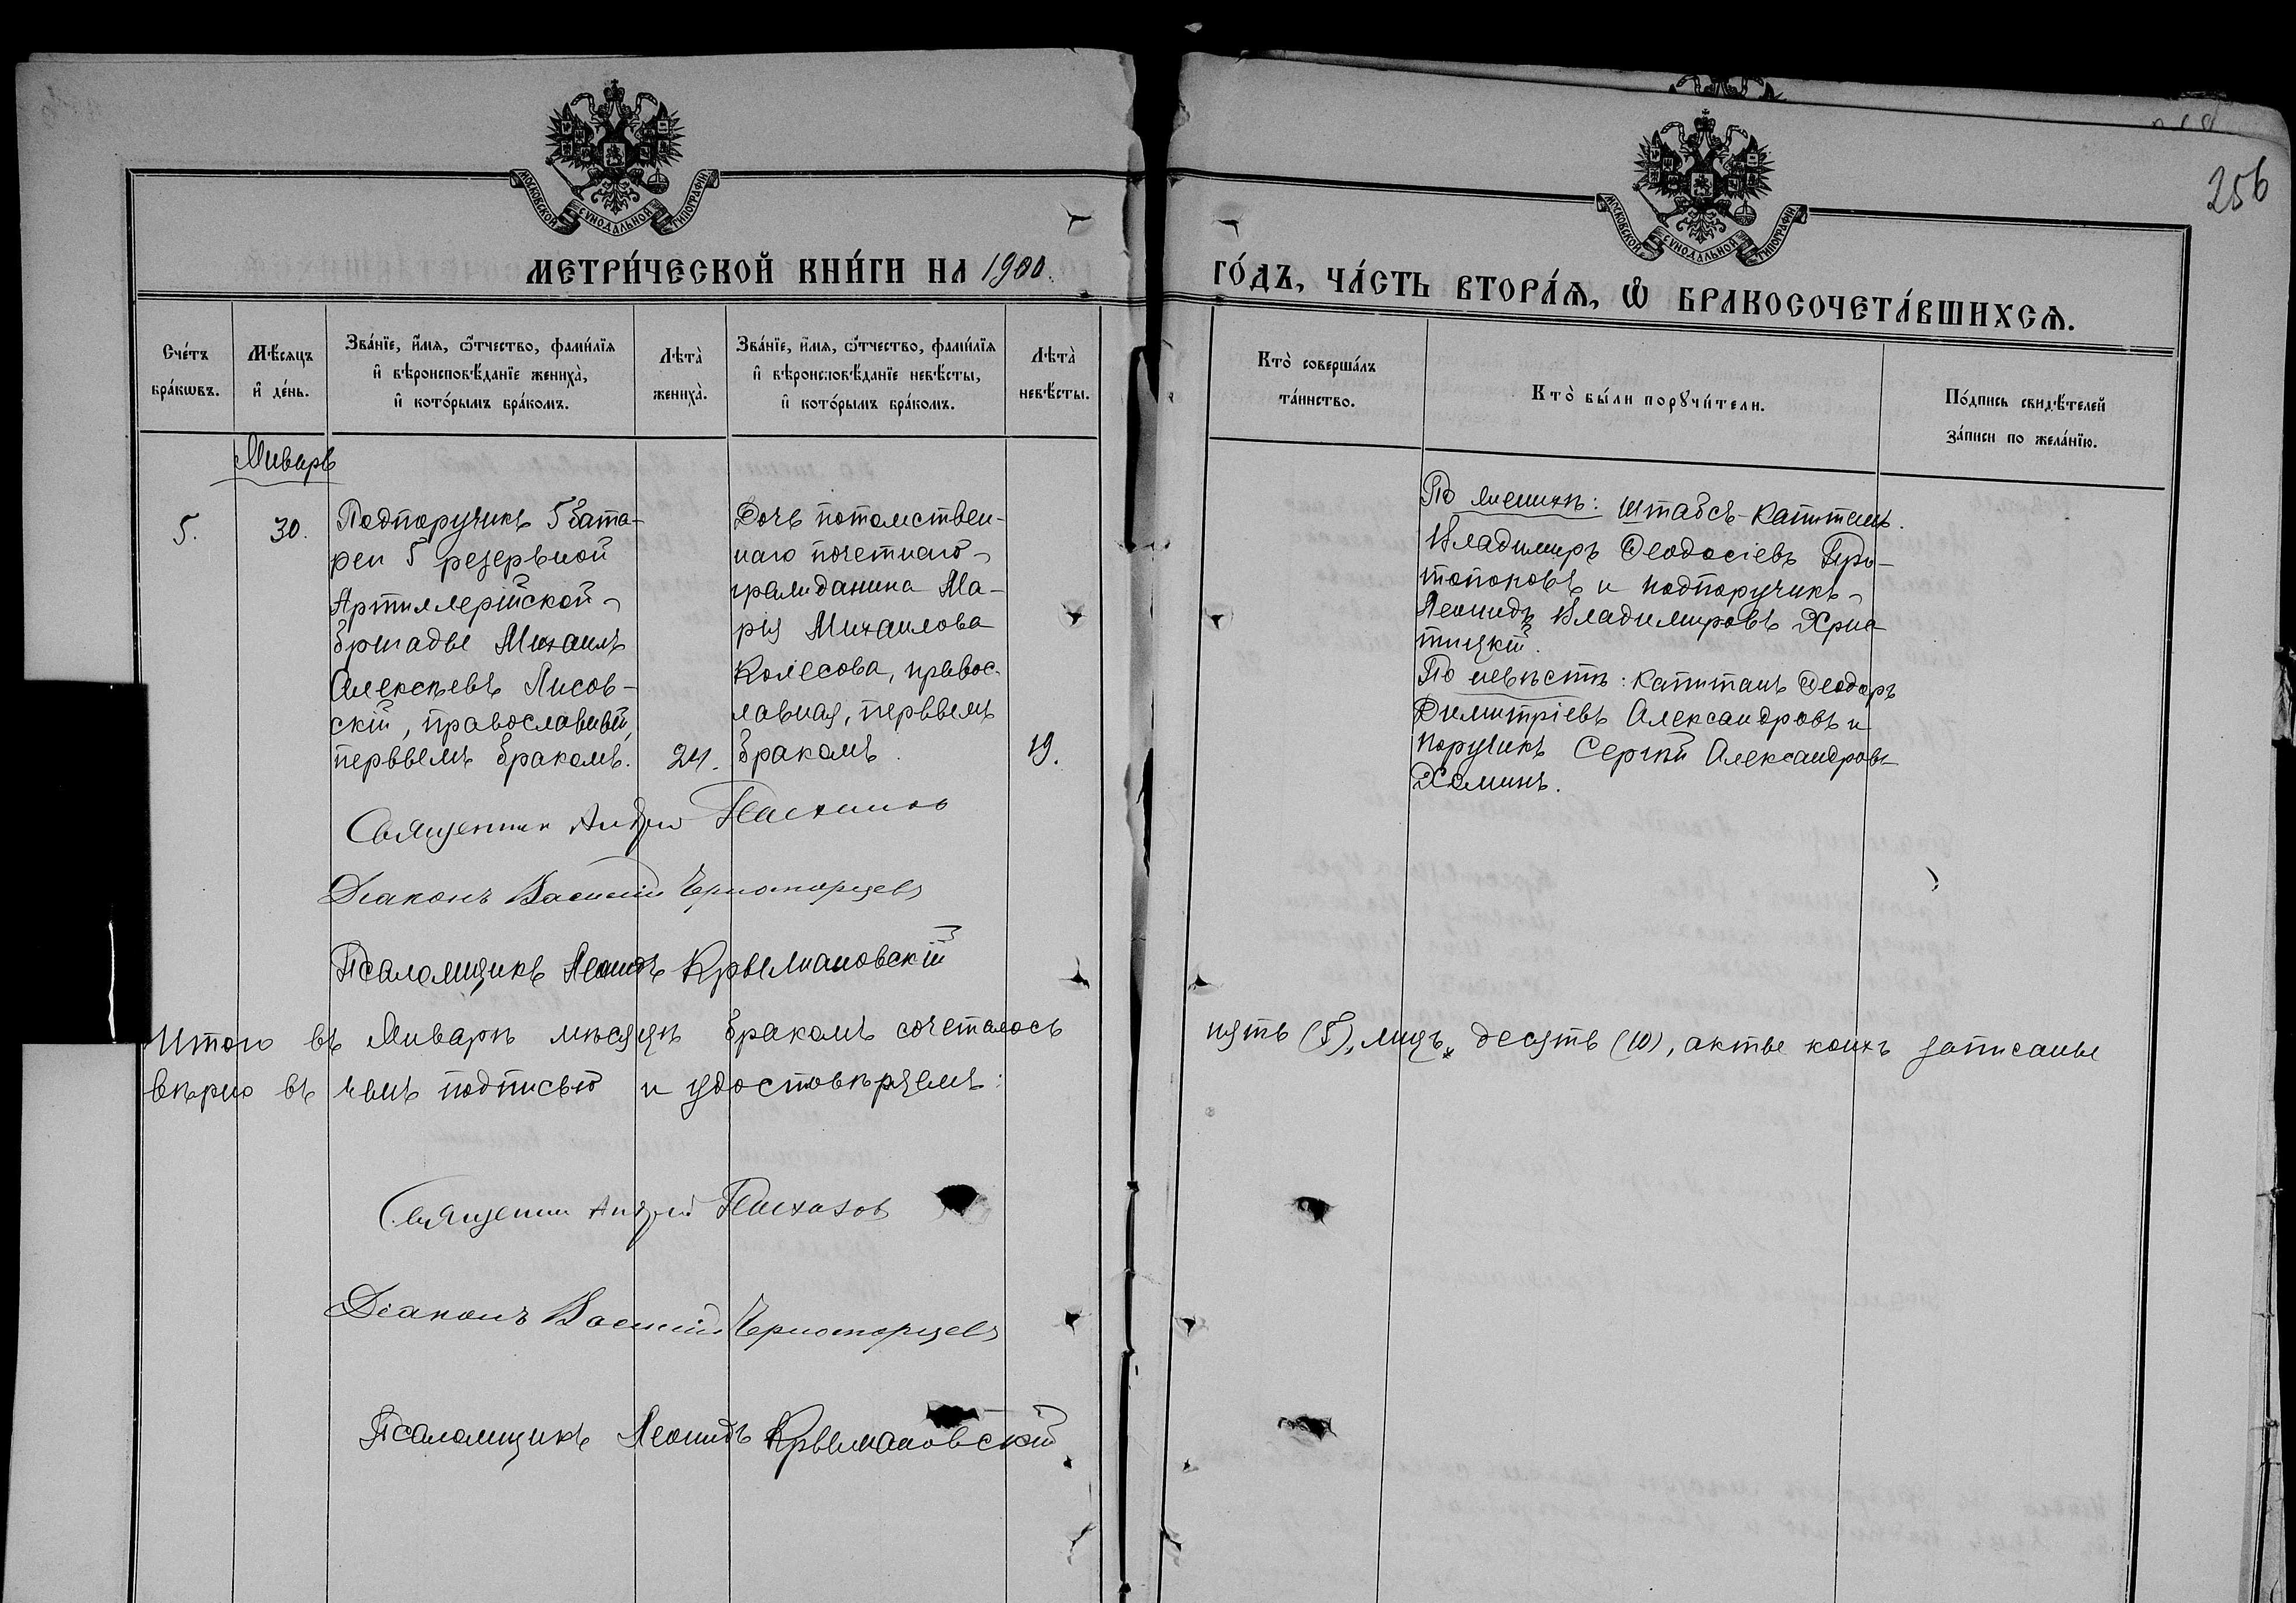 256
МОСКОВСКОЙ СУНОДАЛЬНОЙ ТИПОГРАФІИ
МОСКОВСКОЙ СУНОДАЛЬНОЙ ТИПОГРАФІИ
МЕТРИ́ЧЕСКОЙ КНИ́ГИ НА 1900.
ГО́ДЪ, ЧА́СТЬ ВТОРА́Ѧ, Ѽ БРАКОСОЧЕТА́ВШИХСѦ.
Сче́тъ
бра́кѡвъ.
Мѣ́сяцъ
и҆ де́нь.
Зва́нїе, и҆́мя, ѻ҆́тчество, фами́лїя
и҆ вѣроисповѣ́данїе жениха̀,
и҆ кото́рымъ бра́комъ.
Лѣта̀
жениха̀.
Зва́нїе, и҆́мя, ѻ҆́тчество, фами́лїя
и҆ вѣроисповѣ́данїе невѣ́сты,
и҆ кото́рымъ бра́комъ.
Лѣта̀
невѣ́сты.
Кто̀ соверша́лъ
та́инство.
Кто̀ бы́ли порꙋчи́тели.
По́дпись свидѣ́телей
за́писи по жела́нїю.
Январь
5.
30.
Подпоручикъ 5 бата-
реи 5 резервной
Артиллерійской
бригады Михаилъ
Алексѣевъ Лисов-
скій, православный,
первымъ бракомъ.
24.
Дочь потомствен-
наго почетнаго
гражданина Ма-
рія Михаилова
Колесова, правос-
лавная, первымъ
бракомъ.
19.
По женихѣ: Штабсъ-Капитанъ
Владимиръ Ѳеодосіевъ Про-
топоповъ и подпоручикъ
Леонидъ Владимировъ Хри-
тицкій.
По невѣстѣ: Капитанъ Ѳеодоръ
Димитріевъ Александровъ и
поручикъ Сергѣй Александровъ
Хоминъ.
Священник Андрей
Діаконъ Василій Черноморцевъ
Псаломщикъ Леонидъ Крыжановскій
Итого въ Январѣ мѣсяцѣ бракомъ сочеталось пять (5), лицъ десять (10), акты коихъ записаны
вѣрно въ чемъ подписью и удостовѣряемъ:
Священник Андрей
Діаконъ Василій Черноморцевъ
Псаломщикъ Леонидъ Крыжановскій